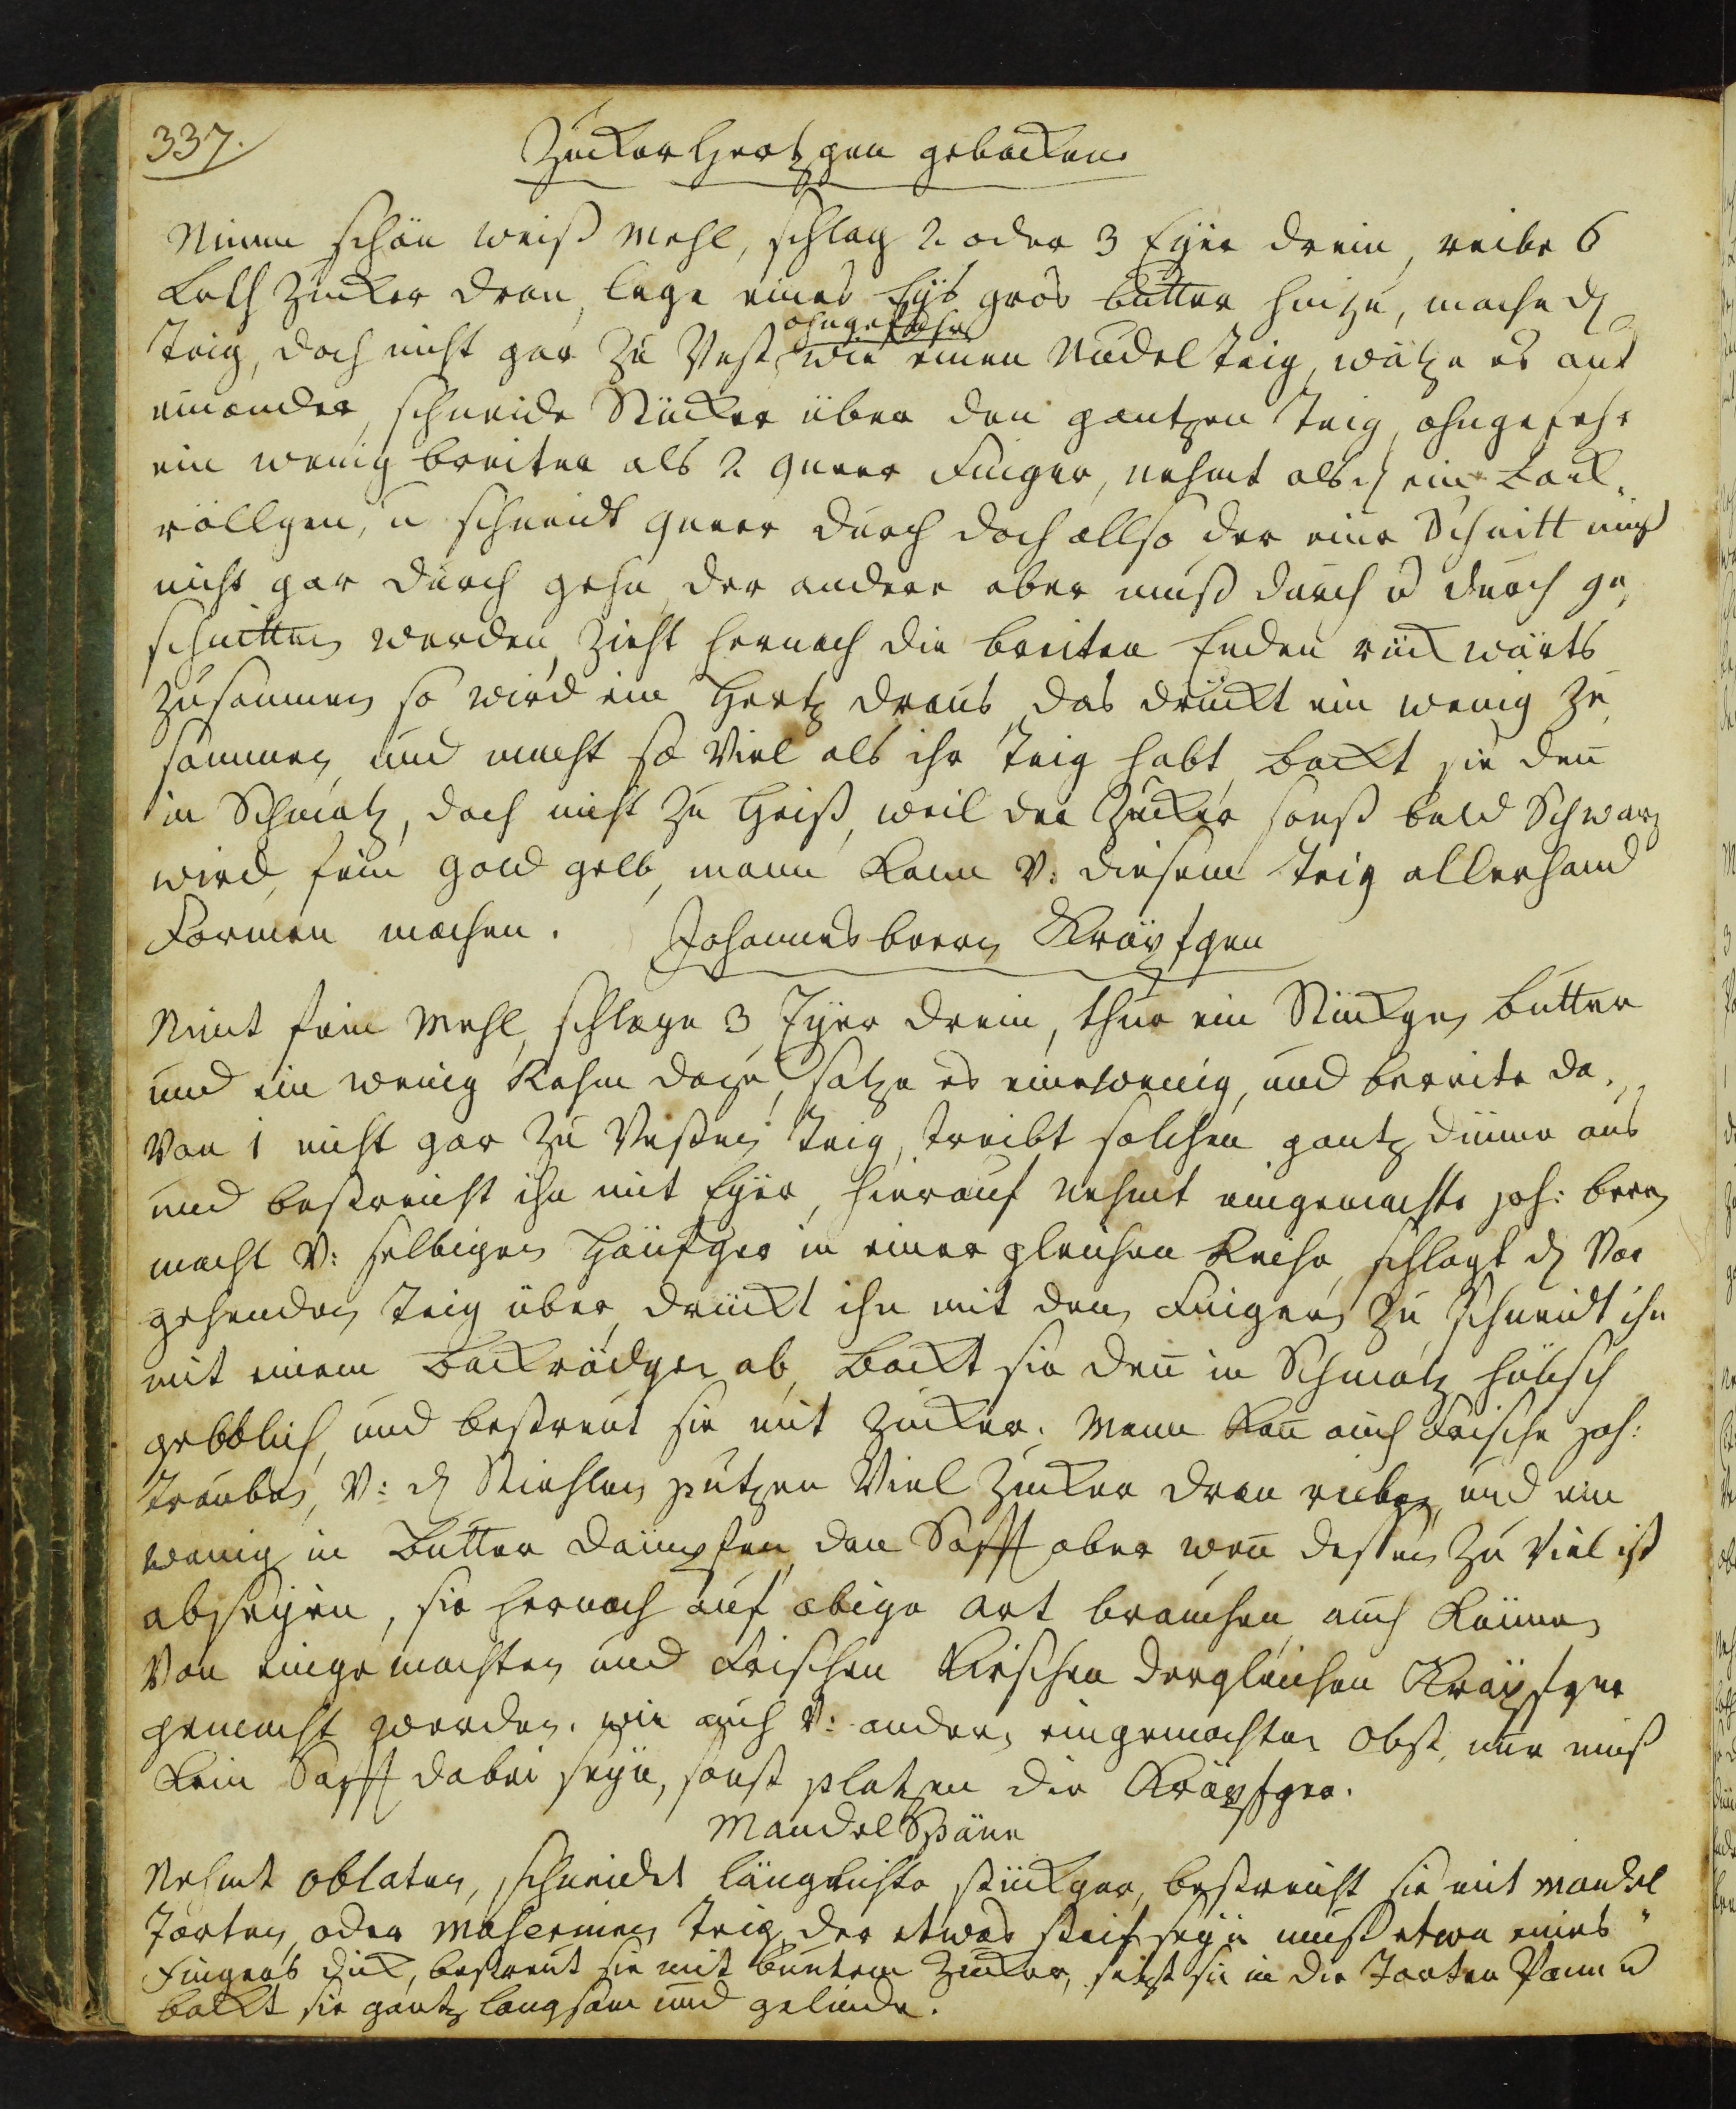 337.
Zucker Hertzgen gebacken.
Nimm schön weiß Mehl, schlag 2. oder 3 Eyer drein, reibe 6
Loth Zucker dran, lege eines Eys gros butter hinzu, mache d
ohngefehr
Teig, doch nicht gar zu Vest, wie einen Nudel teig, wältze es aus
einander, schneide Stücker über den gantzen teig, ohngefehr
ein wenig breiter als 2 queer Finger, nehmt als ein Back,,
rällgen, u schneidt queer durch doch allso der eine Schnitt muß
nicht gar durch gehn, der andere aber muß durch u durch ge,,
schnitten werden, zieht hernach die breiten Enden rückwärts
zusammen so wird ein Hertz draus, das drückt ein wenig zu,,
sammen, und macht so Viel als ihr teig habt, backt sie den̄
in Schmaltz, doch nicht zu heiß, weil der Zucker sonst bald Schwarz
wird, fein gold gelb, mann kann V: diesem teig allerhand
Formen machen.
Johannesbeern Kräpfgen
Nimt fein Mehl, schlage 3 Eyer drein, thue ein Stückgen butter
und ein wenig Rahm dazu, saltze es ein wenig, und bereite da,,
Von 1 nicht gar zu Vesten teig, treibt solchen gantz dünne aus
und bestreicht ihn mit Eyer, hierauf nehmt eingemachte joh: beern
macht V: selbigen Häufger in einer gleichen Reihe, schlagt d Vor
gehenden teig über, drückt ihn mit den Fingern zu, schneidt ihn
mit einem backrädgen ab, backt sie den̄ in Schmaltz hübsch
gelblich, und bestreut sie mit Zucker. Mann kan̄ auch frische joh:
trauben, V: d Stiehlen putzen Viel Zucker dran reiben, und ein
wenig in butter dämpfen, den Safft aber wen̄ dessen zu Viel ist
abseyen, sie hernach auf obige art brauchen, auch können
Von eingemachten und frischen Kirschen dergleichen Kräpfger
gemacht werden. wie auch V: andern eingemachten Obst, nur muß
kein Safft dabei seyn, sonst platzen die Kräpfger.
Mandel Späne
Nehmt oblaten, schneidet länglichte stückger, bestreicht sie mit Mandel
Torten, oder teig, der etwas steif seyn muß etwa eines
Fingers dick, bestreut sie mit buntem Zucker, setzt sie in die Torten Pann u
backt sie gantz langsam und gelinde.